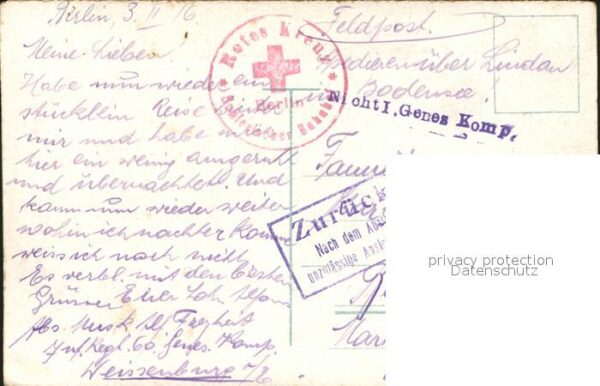 Berlin, 3. II 16
Meine Lieben!
Habe nun wieder ein
stücklein Reise hinter
mir und habe
hier ein wenig ausgeruht
und übernachtet. Und
kann nun wieder weiter
wohin ich nachher komme
weiss ich noch nicht
Es verbl. mit den besten
Grüssen Euer Sohn Alfons
Abs. Musk.
Inf. Regt. 60 Genes. Komp.
Weissenburg i/E
Rotes Kreuz
Berlin
Schlesischer Bahnhof
Feldpost.
über Lindau
Bodensee!
Nicht I. Genes Komp.
Zurüc
Nach dem
unzulässige
privacy protection
Datenschutz